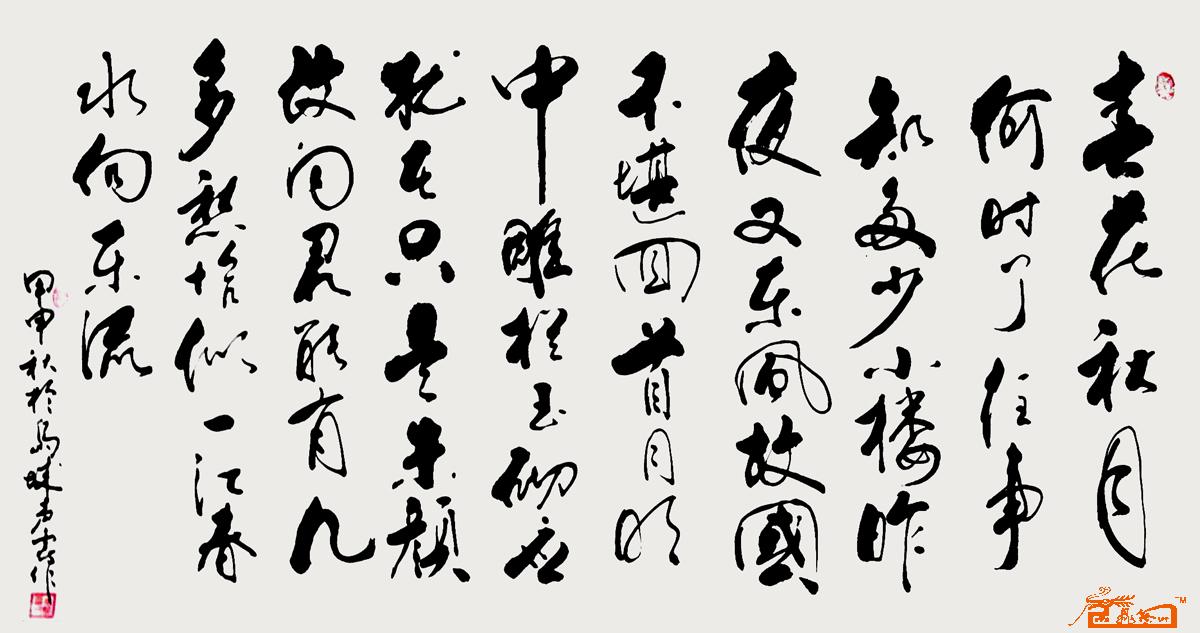 春花秋月
何时了往事
知多少小楼昨
夜又东风故國
不堪回首月明
中雕栏玉砌应
犹在只是朱颜
改问君能有几
多愁恰似一江春
水向东流
甲申秋於城作